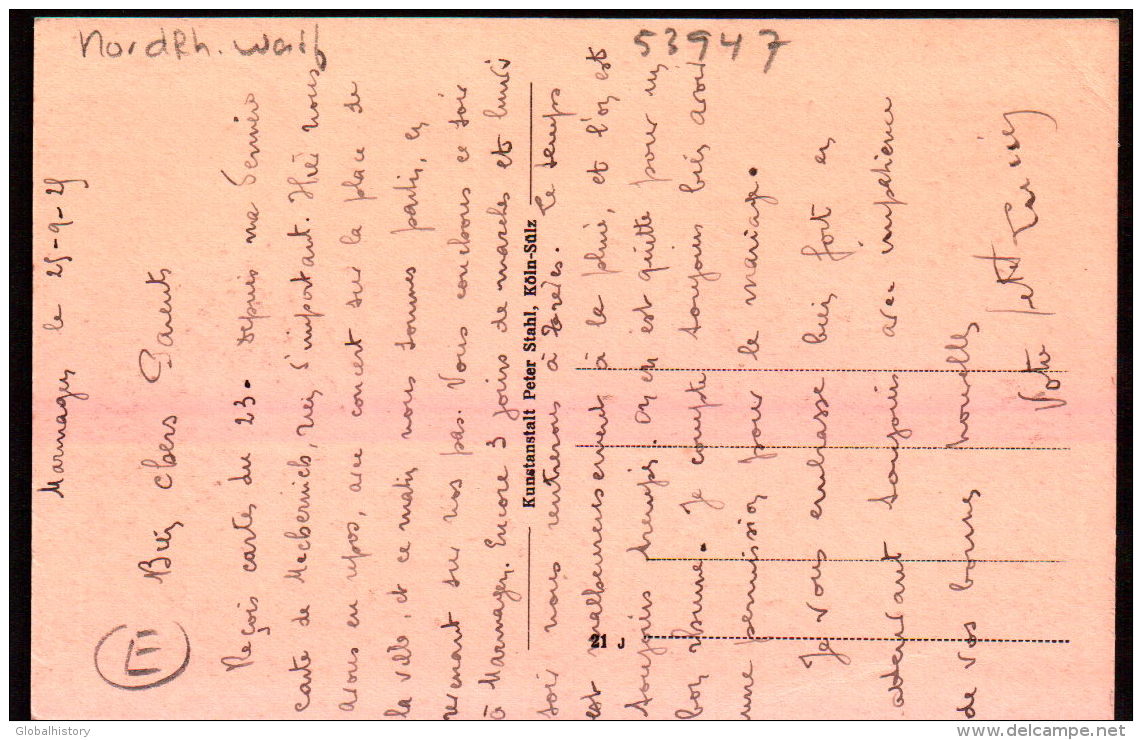 NordRh. Westf
53947
Marmagen le 25-9-25
Bien chers Parents
Reçois cartes du 23. Depuis ma dernière
carte de Mechernich, rien d'important. Hier nous
avons eu repos, avec concert sur la place de
la ville, et ce matin nous sommes partis, en
revenant sur nos pas. Nous couchons ce soir
à Marmagen. Encore 3 jours de marches et lundi
soir nous rentrerons à Le temps
est malheureusement à la pluie, et l'on est
toujours trempés. On en est quitte pour un
bon rhume. Je compte toujours bien avoir
une permission pour le mariage.
Je vous embrasse bien fort en
attendant toujours avec impatience
de vos bonnes nouvelles
Votre petit
E
Kunstanstalt Peter Stahl, Köln-Sülz
21 J
Globalhistory
delcampe.net